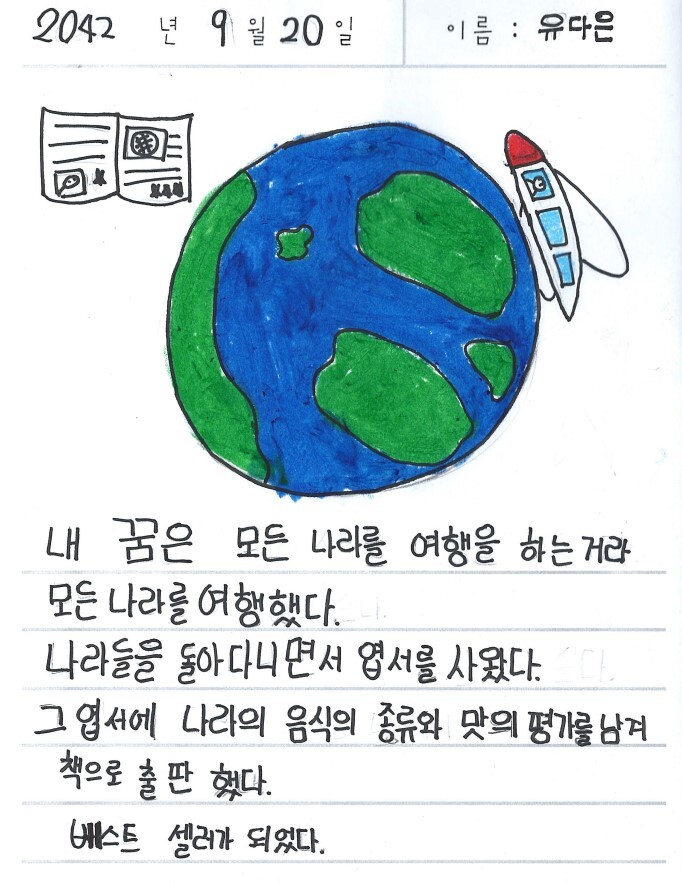 2042 년 9 월 20 일 이름 : 유다은
내 꿈은 모든 나라를 여행을 하는거라
모든 나라를 여행했다.
나라들을 돌아다니면서 엽서를 사왔다.
그 엽서에 나라의 음식의 종류와 맛의 평가를 남겨
책으로 출판 했다.
베스트 셀러가 되었다.